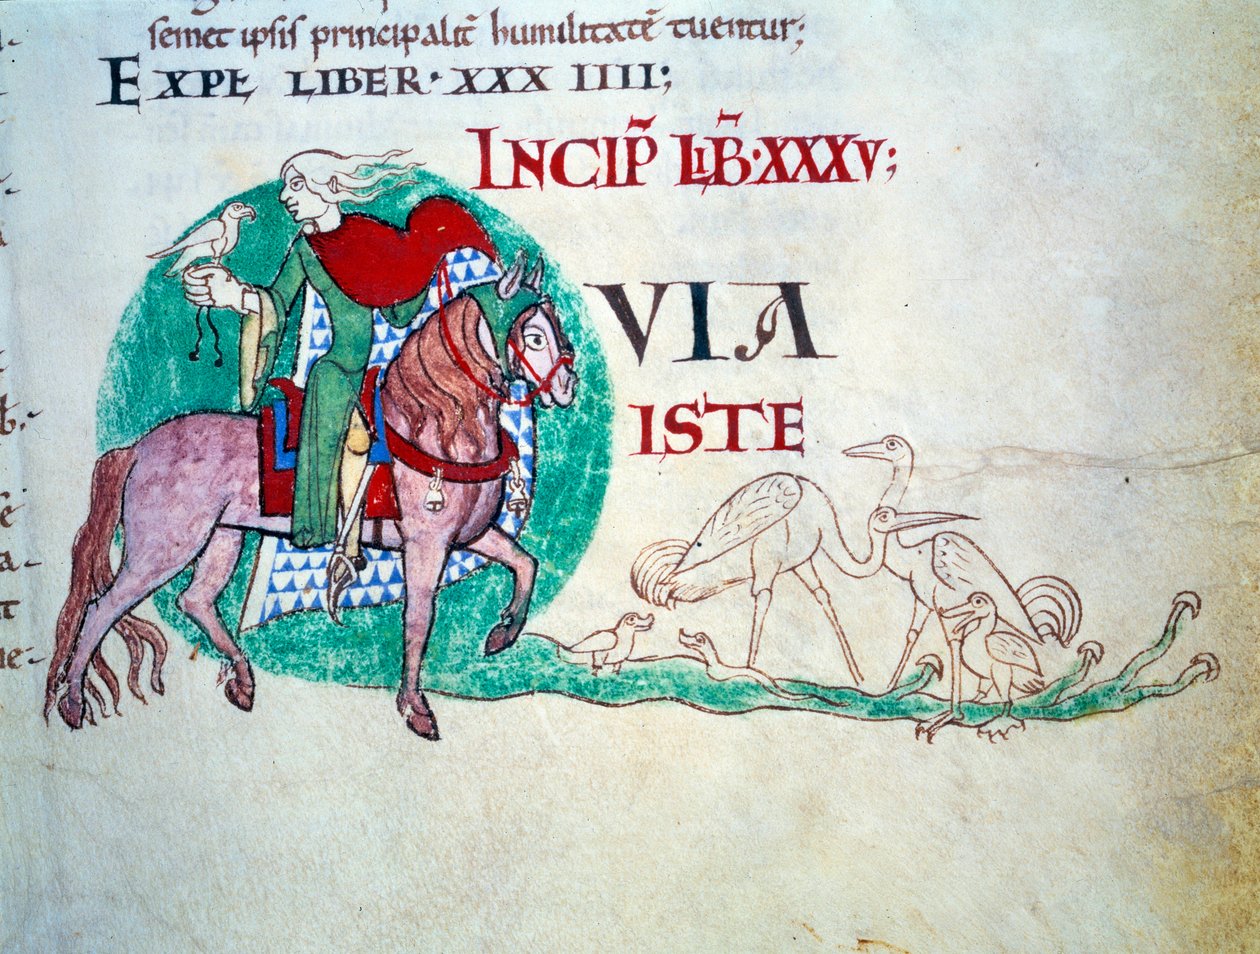 semet ipsis principalit̃ humilitatẽ tuentur;
EXPŁ LIBER · XXX IIII;
INCIP̃ LIB̃ · XXXV;
VIA
ISTE